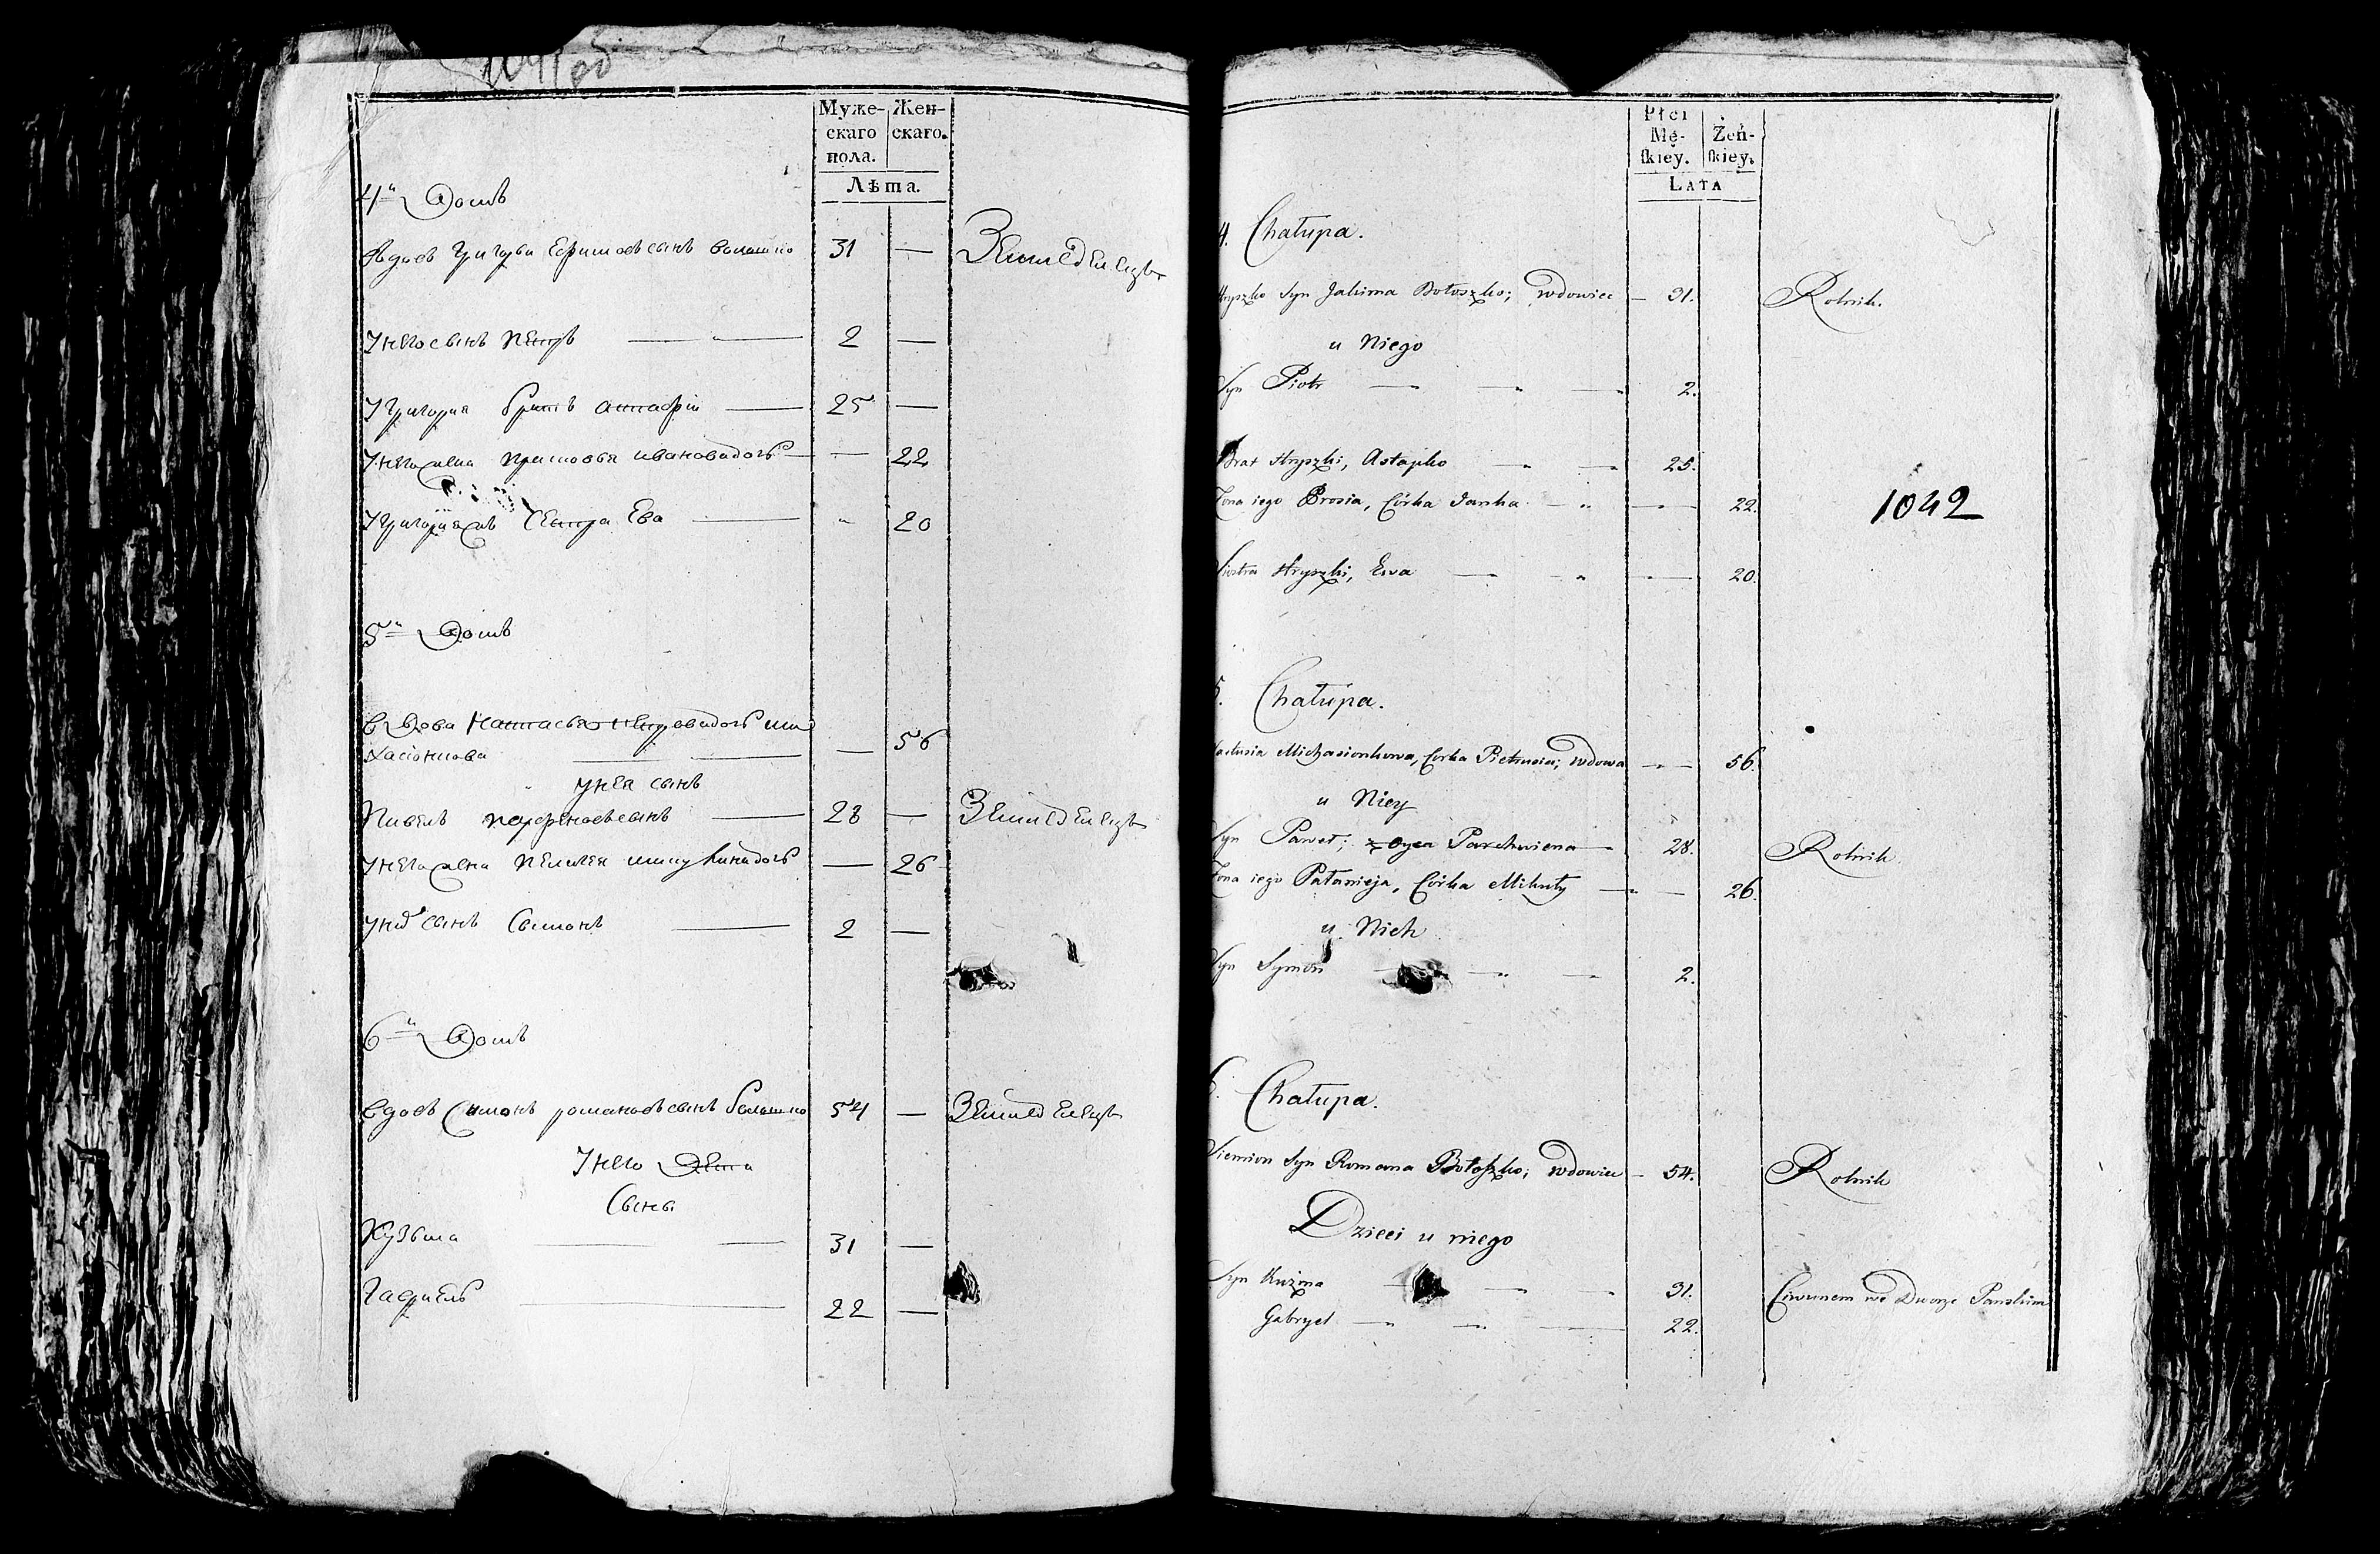 Муже-
скаго
пола.
Жен-
скаго.
Лѣта.
4й Домъ
Вдовъ Григорьи Ефимовъ сынъ Болошко 31 — Земледелецъ
У него сынъ Петръ — 2 —
У Григория братъ Астафiй — 25 —
У него жена Просковья Ивановадочь — — 22
У Григорiя Сестра Ева — „ 20
5й Домъ
Вдова Настасья Петровадочь Ми
хасiонкова — — 56
У нея сынъ
Павелъ Парфеновъ сынъ — 28 — Земледелецъ
У него жена Пелагея Микулинадочь — 26
У них сынъ Сымонъ — 2 —
6й Домъ
Вдовъ Симонъ Романовъ сынъ Болошко 54 — Земледелецъ
У него Дети
Сыны
Кузьма — 31 —
Гаврiилъ — 22 —
Płci
Mę-
ſkiey.
Żeń-
ſkiey.
LATA
4. Chałupa.
Hryszko Syn Jakima Bołoszko; Wdowiec — 31. Rolnik.
u Niego
Syn Piotr — „ — 2.
Brat Hryszki, Astapko — „ — 25.
Żona iego Prosia, Córka Janka — „ — 22.
1042
Siostra Hryszki, Ewa — „ — 20.
5. Chałupa.
Nastusia Michasionkowa, Corka Pietrusia; Wdowa — 56.
u Niey
Syn Paweł; z oyca Parchwiena — 28. Rolnik.
Żona iego Pałanieja, Córka Mikuły — 26.
u Nich
Syn Symon — „ — 2.
6. Chałupa.
Siemion Syn Romana Bołoszko; Wdowiec — 54. Rolnik
Dzieci u niego
Syn Kuźma — „ — 31. Ciwunem we Dworze Pańskim
Gabryel — „ — 22.